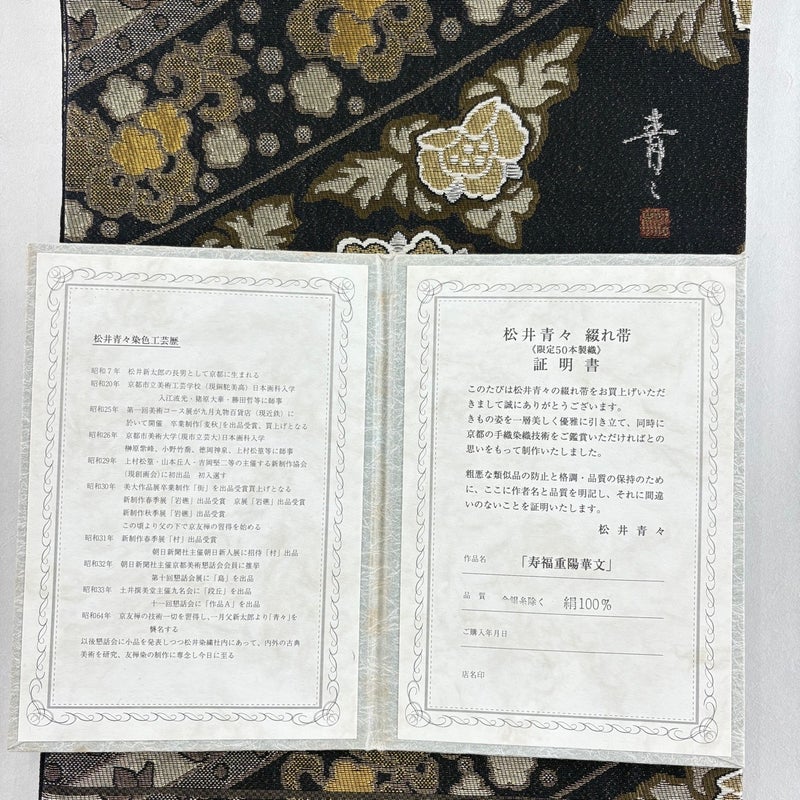 青々
松井青々染色工芸歴
昭和7年 松井新太郎の長男として京都に生まれる
昭和20年 京都市立美術工芸学校(現銅駝美高)日本画科入学
入江波光・猪原大華・勝田哲等に師事
昭和25年 第一回美術コース展が九月丸物百貨店(現近鉄)に
於いて開催 卒業制作「麦秋」を出品受賞、買上となる
昭和26年 京都市美術大学(現市立芸大)日本画科入学
榊原紫峰、小野竹喬、徳岡神泉、上村松篁等に師事
昭和29年 上村松篁・山本丘人・吉岡堅二等の主催する新制作協会
(現創画会)に初出品 初入選す
昭和30年 美大作品展卒業制作「街」を出品受賞買上げとなる
新制作春季展「岩礁」出品受賞 京展「岩礁」出品受賞
新制作秋季展「岩礁」出品受賞
この頃より父の下で京友禅の習得を始める
昭和31年 新制作春季展「村」出品受賞
朝日新聞社主催朝日新人展に招待「村」出品
昭和32年 朝日新聞社主催京都美術懇話会会員に推挙
第十回懇話会展に「島」を出品
昭和33年 土井撰美堂主催九名会に「段丘」を出品
十一回懇話会に「作品A」を出品
昭和64年 京友禅の技術一切を習得し、一月父新太郎より「青々」を
襲名する
以後懇話会に小品を発表しつつ松井染繍社内にあって、内外の古典
美術を研究、友禅染の制作に専念し今日に至る
松井青々 綴れ帯
《限定50本製織》
証明書
このたびは松井青々の綴れ帯をお買上げいただ
きまして誠にありがとうございます。
きもの姿を一層美しく優雅に引き立て、同時に
京都の手織染織技術をご鑑賞いただければとの
思いをもって制作いたしました。
粗悪な類似品の防止と格調・品質の保持のため
に、ここに作者名と品質を明記し、それに間違
いのないことを証明いたします。
松井青々
作品名 「寿福重陽華文」
品質 金銀糸除く 絹100%
ご購入年月日
店名印